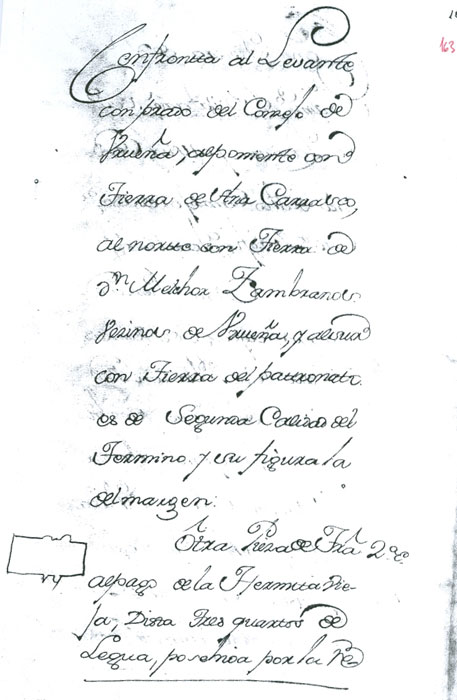 163
Confronta al Levante,
con prado del Consejo de
Urueña, al poniente con
Tierra de Ana Carrasco,
al norte con Tierra de
Dn Melchor Zambranos
Vezinos de Urueña, y al sur
con Tierra del patronato
es de Segunda Calidad del
Termino y su figura la
del margen.
Otra Pieza de Tra 2ª
al pago de la Hermita Vie-
ja, Dista Tres quartos de
Legua, posehida por la